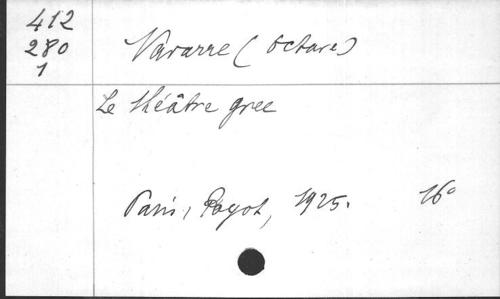 412
280
1
Navarre (Octave)
Le théâtre grec
Paris, Payot, 1925. 16°